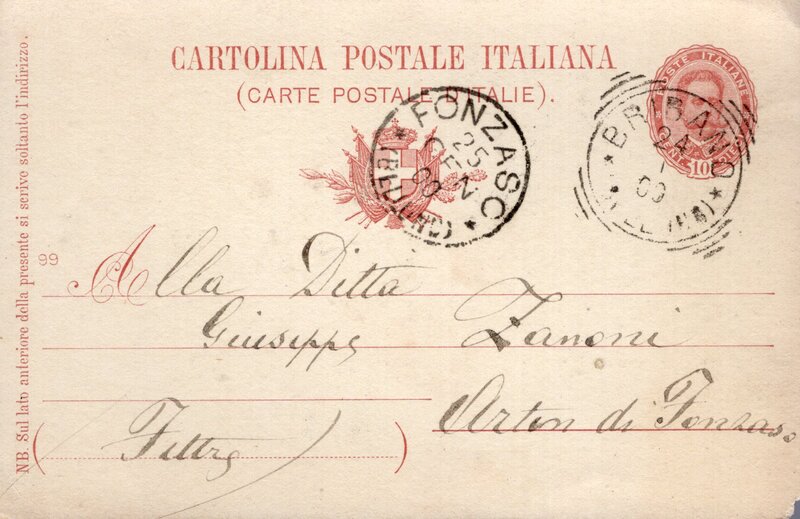 CARTOLINA POSTALE ITALIANA
(CARTE POSTALE D'ITALIE).
POSTE ITALIANE
CENT. 10
FONZASO
25
GEN
00
BRIBANO
24
1
00
99
Alla Ditta
Giuseppe Zanoni
Arten di Fonzaso
(Feltre)
NB. Sul lato anteriore della presente si scrive soltanto l'indirizzo.